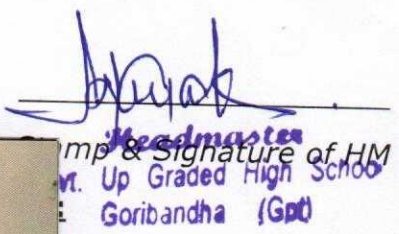 Headmaster
mp & Signature of HM
vt. Up Graded High Schoo
Goribandha (Gpt)